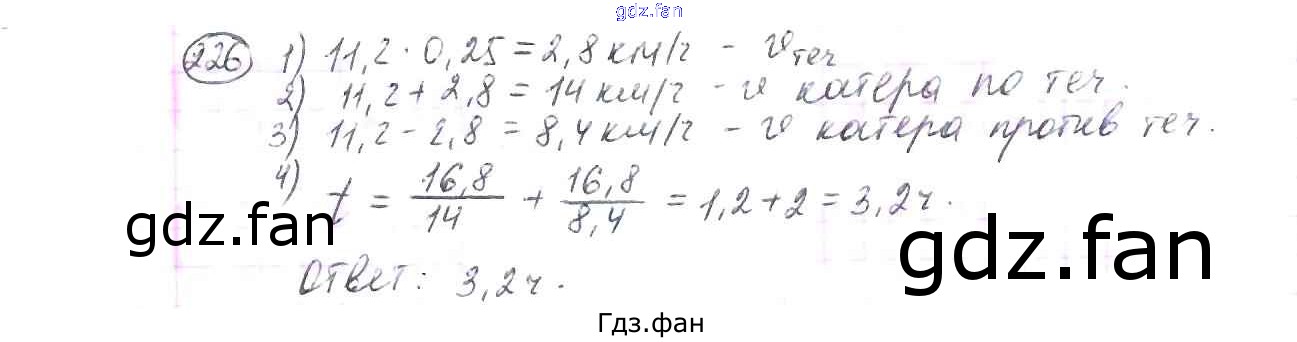 gdz.fan
226 1) 11,2 · 0,25 = 2,8 км/ч - v теч
2) 11,2 + 2,8 = 14 км/ч - v катера по теч.
3) 11,2 - 2,8 = 8,4 км/ч - v катера против теч.
4) t = 16,8/14 + 16,8/8,4 = 1,2 + 2 = 3,2 ч.
gdz.fan
gdz.fan
Ответ: 3,2 ч.
Гдз.фан